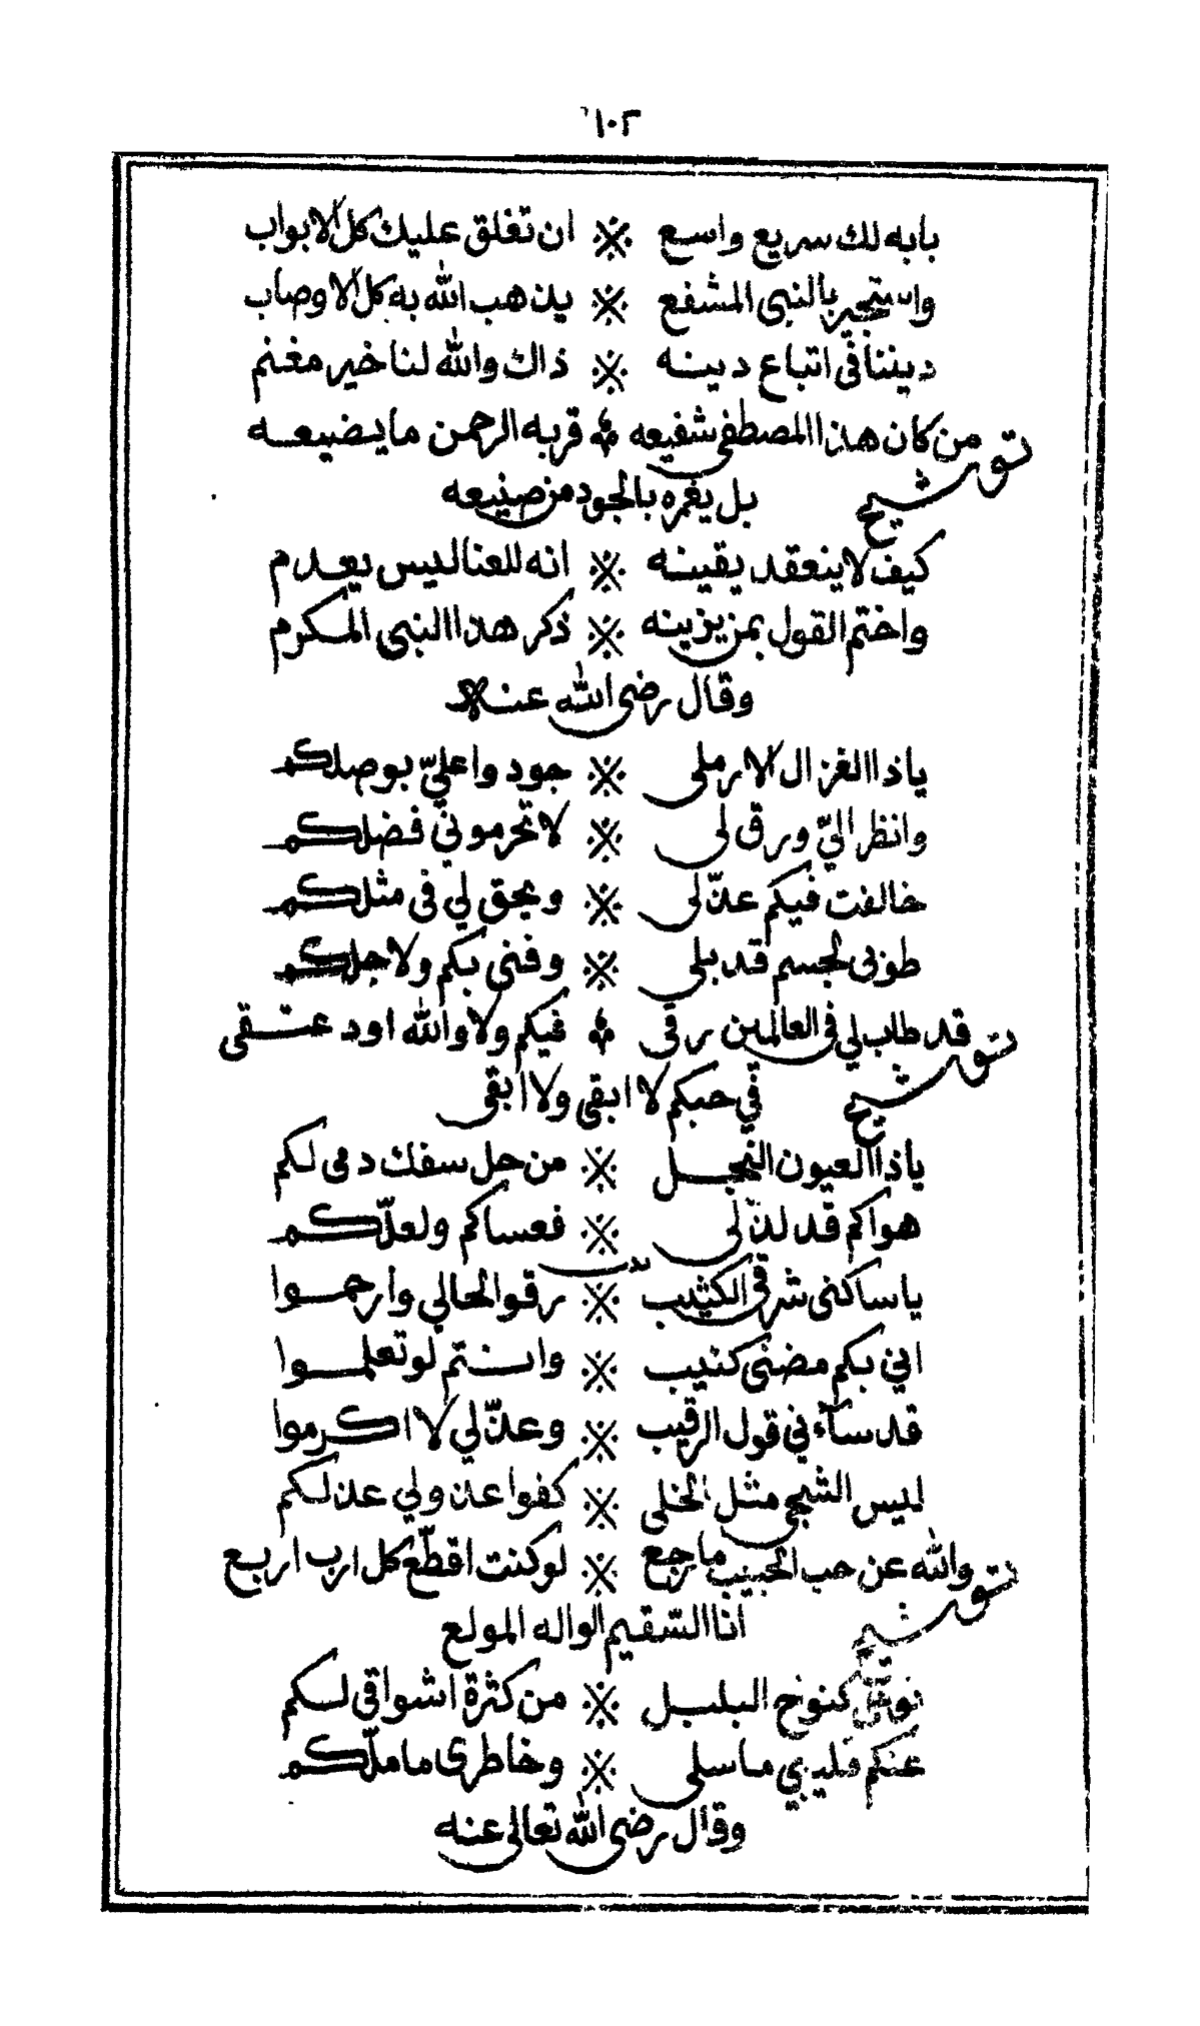 ١٠٢
بابه لك سريع واسع ※ ان تغلق عليك كل الابواب
واستجير بالنبي المشفع ※ يذهب الله به كل الاوصاب
ديننا في اتباع دينه ※ ذاك والله لنا خير مغنم
توشيح من كان هذا المصطفى شفيعه ※ قربه الرحمن ما يضيعه
بل يغمره بالجود من صنيعه
كيف لا ينعقد يقينه ※ انه للعنا ليس يعدم
واختم القول بمن يزينه ※ ذكر هذا النبي المكرم
وقال رضى الله عنه
ياذا الغزال الارملى ※ جودوا عليّ بوصلكم
وانظر اليّ ورق لى ※ لا تحرموني فضلكم
خالفت فيكم عذّلى ※ ويحق لي فى مثلكم
طوبى لجسم قد بلى ※ وفنى بكم ولاجلكم
توشيح قد طاب لي فى العالمين رقى ※ فيكم ولا والله اود عتقى
في حبكم لا ابقى ولا ابقى
ياذا العيون النجل ※ من حل سفك دمى لكم
هواكم قد لذّ لى ※ فعساكم ولعلّكم
يا ساكنى شرقى الكثيب ※ رقوا لحالي وارحموا
اني بكم مضنى كئيب ※ وانتم لو تعلموا
قد ساءني قول الرقيب ※ وعذّلي لا اكرموا
ليس الشجى مثل الخلى ※ كفوا عذولي عذلكم
توشيح والله عن حب الحبيب ما رجع ※ لو كنت اقطّع كل ارب اربع
انا السّقيم الواله المولع
كنوح البلبل ※ من كثرة اشواقى لكم
عنكم قليبي ما سلى ※ وخاطرى ما ملّكم
وقال رضى الله تعالى عنه